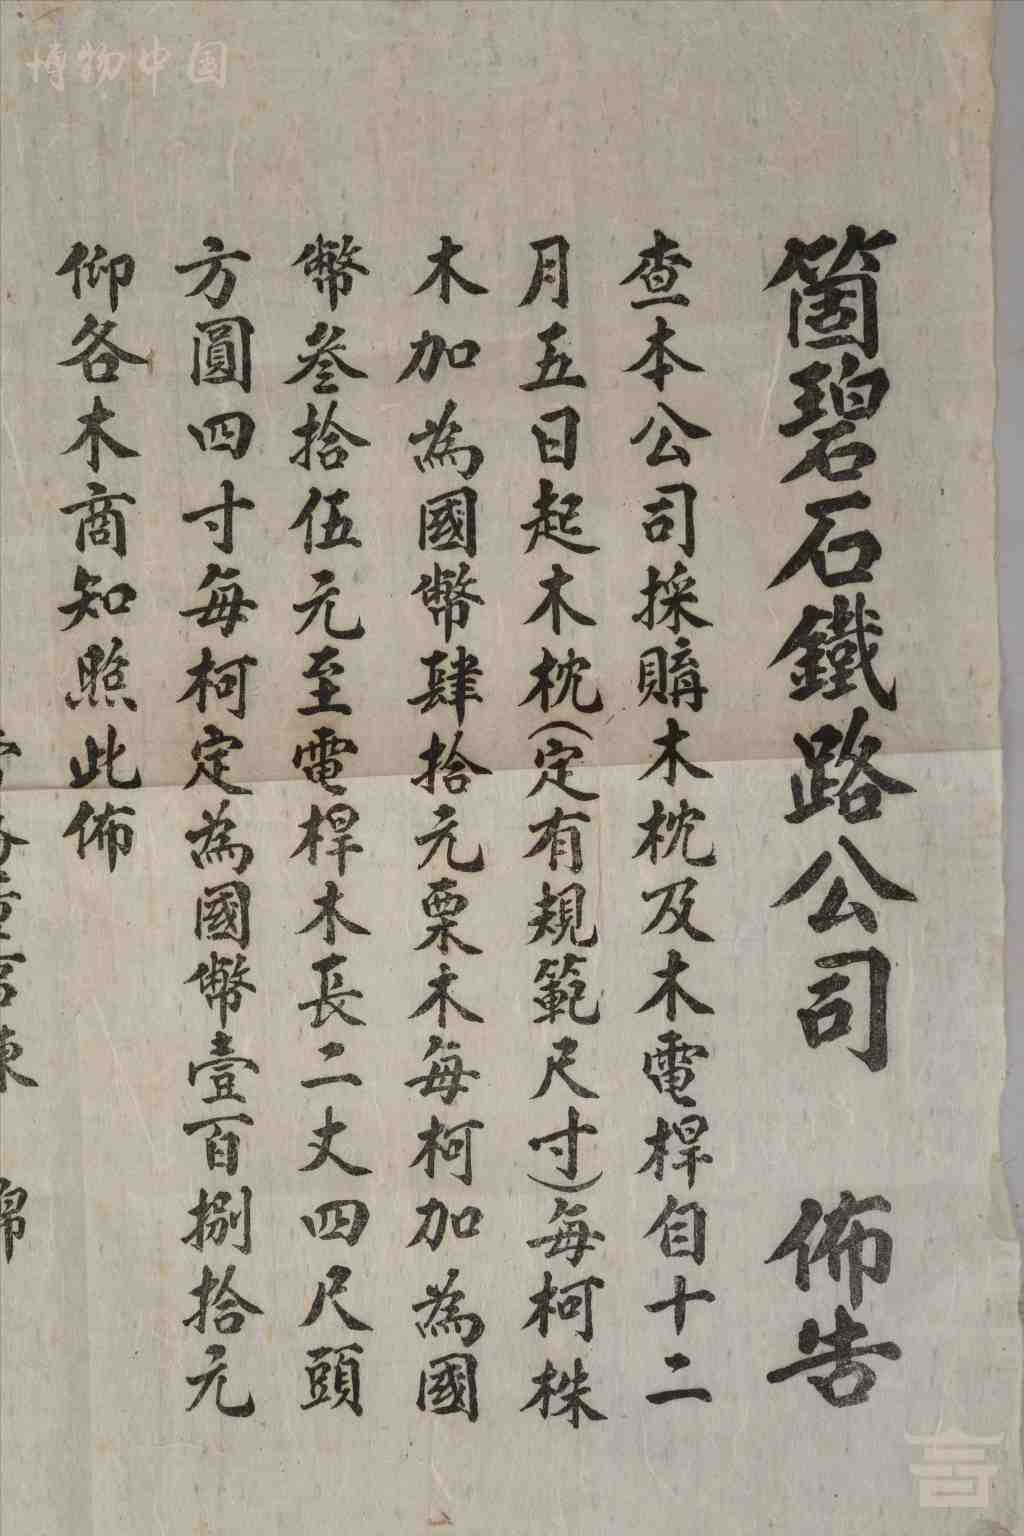 箇碧石鐵路公司 佈告
查本公司採購木枕及木電桿自十二
月五日起木枕(定有規範尺寸)每柯株
木加為國幣肆拾元栗木每柯加為國
幣叁拾伍元至電桿木長二丈四尺頭
方圓四寸每柯定為國幣壹百捌拾元
仰各木商知照此佈
博物中国